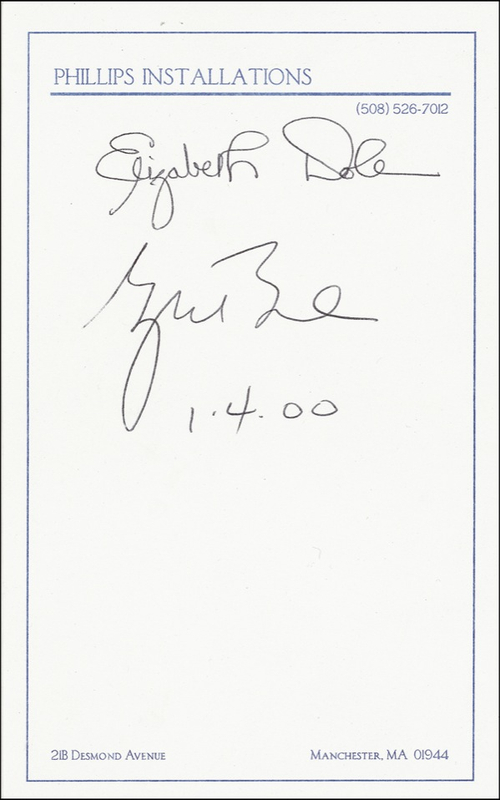 PHILLIPS INSTALLATIONS
(508) 526-7012
Elizabeth Dole
1.4.00
21B DESMOND AVENUE MANCHESTER, MA 01944